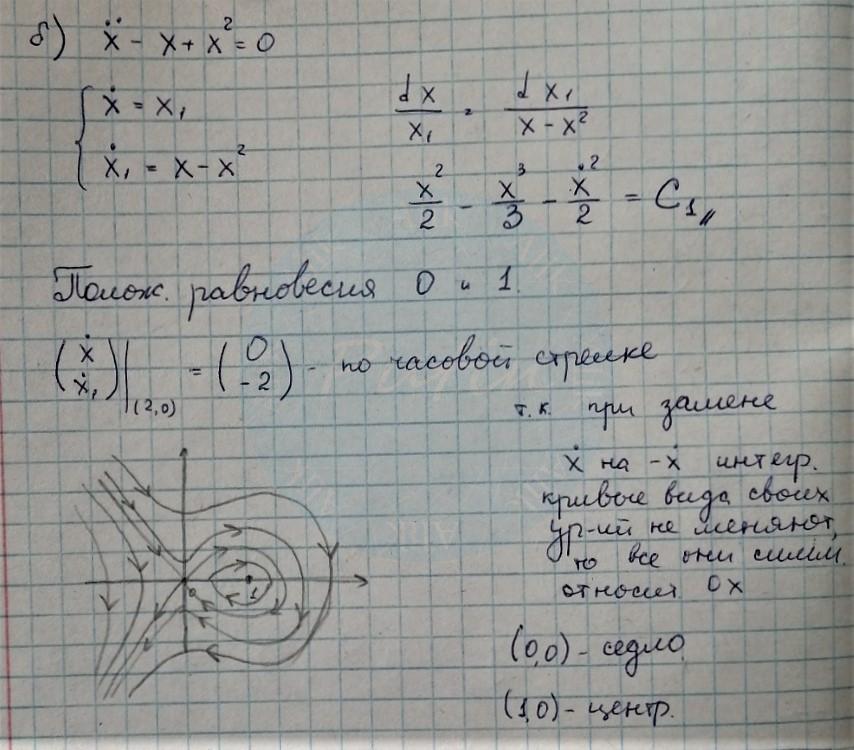 б) ẍ - x + x² = 0
{ ẋ = x₁
ẋ₁ = x - x²
dx/x₁ = dx₁/(x - x²)
x²/2 - x³/3 - ẋ²/2 = C₁
Полож. равновесия 0 и 1.
(ẋ ẋ₁)|(2,0) = (0 -2) - по часовой стрелке
т.к. при замене
ẋ на -ẋ интегр.
кривые вида своих
ур-ий не меняют,
то все они симм.
относит 0x
(0,0) - седло
(1,0) - центр.
0 1